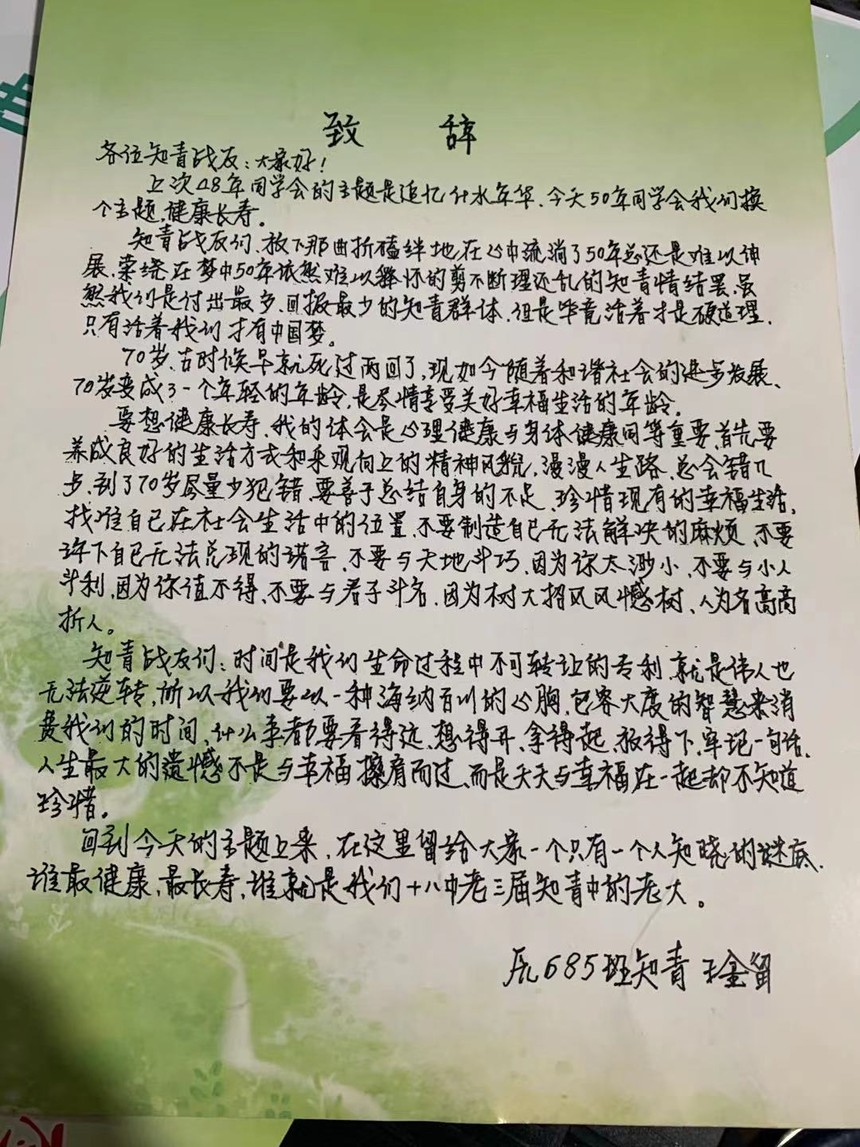 致 辞
各位知青战友：大家好！
上次48年同学会的主题是追忆什水年华、今天50年同学会我们换
个主题，健康长寿。
知青战友们、放下那曲折磕绊地在心中流淌了50年总还是难以伸
展、萦绕在梦中50年依然难以释怀的剪不断理还乱的知青情结罢、虽
然我们是付出最多、回报最少的知青群体、但是毕竟活着才是硬道理，
只有活着我们才有中国梦。
70岁、古时候早就死过两回了，现如今随着和谐社会的进步发展、
70岁变成了一个年轻的年龄、是尽情享受美好幸福生活的年龄。
要想健康长寿、我的体会是心理健康与身体健康同等重要、首先要
养成良好的生活方式和乐观向上的精神风貌，漫漫人生路、总会错几
步、到了70岁尽量少犯错、要善于总结自身的不足、珍惜现有的幸福生活，
找准自己在社会生活中的位置、不要制造自己无法解决的麻烦、不要
许下自己无法兑现的诺言、不要与天地斗巧、因为你太渺小、不要与小人
斗利，因为你值不得、不要与君子斗名，因为树大招风风憾树、人为名高高
折人。
知青战友们：时间是我们生命过程中不可转让的专利、就是伟人也
无法逆转，所以我们要以一种海纳百川的心胸，包容大度的智慧来消
费我们的时间、什么事都要看得远、想得开、拿得起、放得下、牢记一句话，
人生最大的遗憾不是与幸福擦肩而过、而是天天与幸福在一起却不知道
珍惜。
回到今天的主题上来、在这里留给大家一个只有一个人知晓的谜底、
谁最健康，最长寿，谁就是我们十八中老三届知青中的老大。
原685班知青 王金留